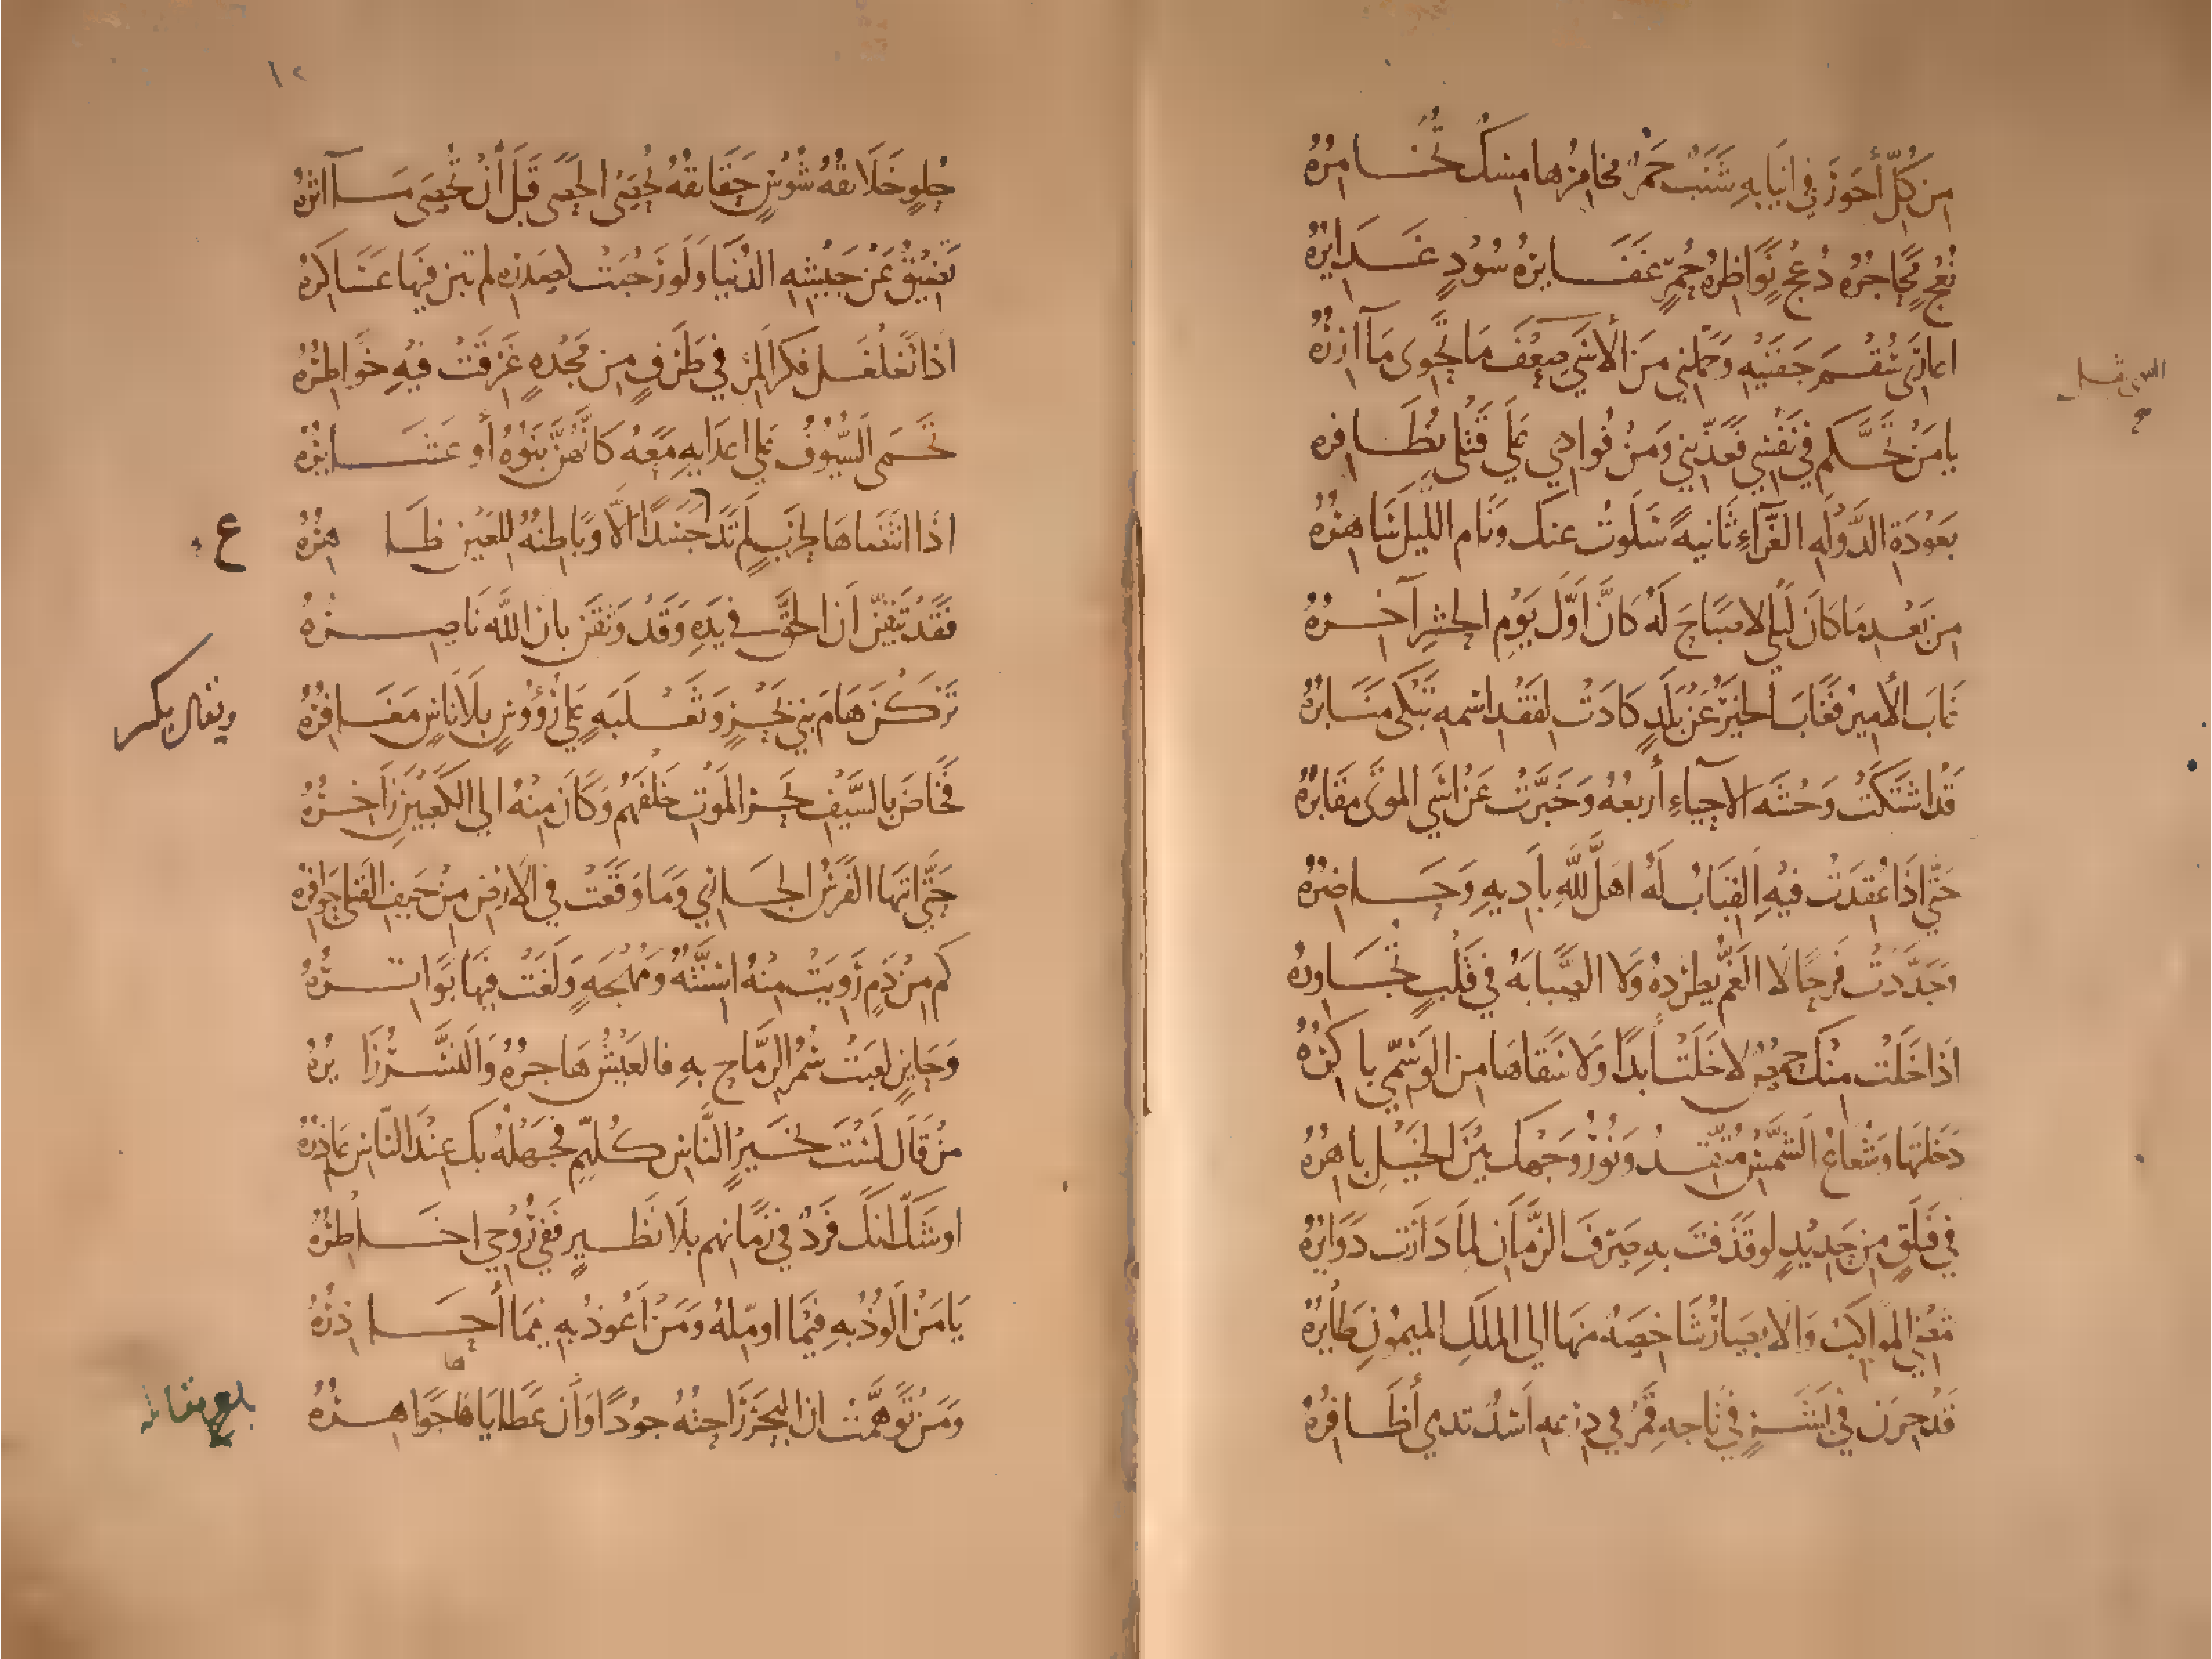 من كل أحوز في انيابه شنب خمر مخامرها مسك تخامره
نعج محاجره دعج نواظره حمر غفايره سود غدايره
اعارني سقم جفنيه وحملني من الأنثى ضعف ما تحوى مآازره
يا من تحكم في نفسي فعذبني ومن فوادي على قتلي يظافره
بعودة الدولة الغراء ثانية سلوت عنك ونام الليل ساهره
من بعد ما كان ليلي لا صباح له كان اول يوم الحشر آخره
غاب الأمير فغاب الخير عن بلد كادت لفقد اسمه تبكى منابره
قد اشتكت وحشة الاحياء أربعه وخبرت عن اسى الموتى مقابره
حتى اذا عقدت فيه القباب له اهل لله باديه وحاضره
وجددت فرحا لا الغم يطرده ولا الصبابه في قلب تجاوره
اذا خلت منك حمص لا خلت ابدا ولا سقاها من الوسمي باكره
دخلتها وشعاع الشمس متقد ونور وجهك بين الخيل باهره
في فيلق من حديد لو قذفت به صرف الزمان لما دارت دوايره
تمضي المواكب والابصار شاخصه منها الى الملك الميمون طايره
قد حرن في بشر في تاجه قمر في درعه اسد تدمي أظافره
١٢
حلو خلائقه شوس حقائقه تحصى الحصى قبل أن تحصى مآثره
تضيق عن جيشه الدنيا ولو رحبت لصدره لم تبن فيها عساكره
اذا تغلغل فكر المرء في طرف من مجده غرقت فيه خواطره
تحمى السيوف على اعدايه معه كانهن بنوه أو عشايره
اذا انتضاها لحرب لم تدع جسدا الا وباطنه للعين ظاهره
ع
فقد تيقن ان الحق في يده وقد وثقن بان الله ناصره
تركن هام بني بحر وثعلبه على رؤوس بلا ناس مغافره
ويقال بكر
فخاض بالسيف بحر الموت خلفهم وكان منه الى الكعبين زاخره
حتى انتها الفرس الجاري وما وقعت في الارض من جيف القتلى حوافره
كم من دم رويت منه اسنته ومهجة ولغت فيها بواتره
وحاين لعبت سمر الرماح به فالعيش هاجره والنسر زايره
من قال لست بخير الناس كلهم فجهله بك عند الناس عاذره
او شك انك فرد في زمانهم بلا نظير ففي روحي اخاطره
يا من الوذ به فيما اومله ومن اعوذ به مما أحاذره
ومن توهمت ان البحر راحته جودا وأن عطاياها جواهره
بلغ مقابله